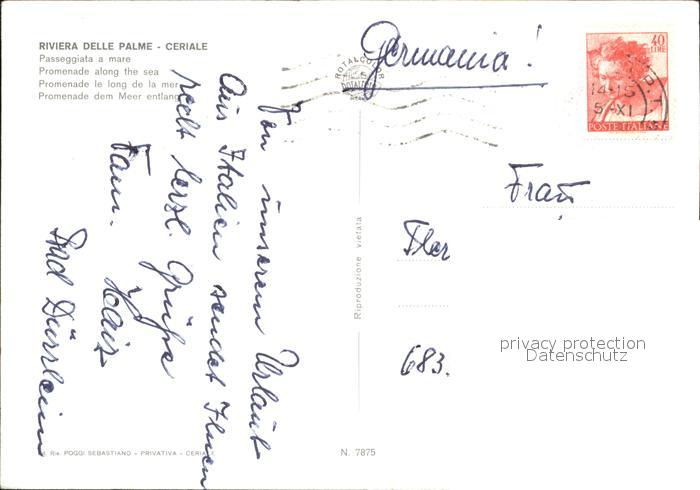 RIVIERA DELLE PALME - CERIALE
Passeggiata a mare
Promenade along the sea
Promenade le long de la mer
Promenade dem Meer entlang
ROTALCOLOR
ROTALFOTO
Germania!
40
LIRE
14-15
5-XI
POSTE ITALIANE
Von unserem Urlaub
Aus Italien sendet Ihnen
recht herzl. Grüße
Fam. Heinz
und Dürrlein
Frau
Her
683.
Riproduzione vietata
privacy protection
Datenschutz
Ris. POGGI SEBASTIANO - PRIVATIVA - CERIALE
N. 7875